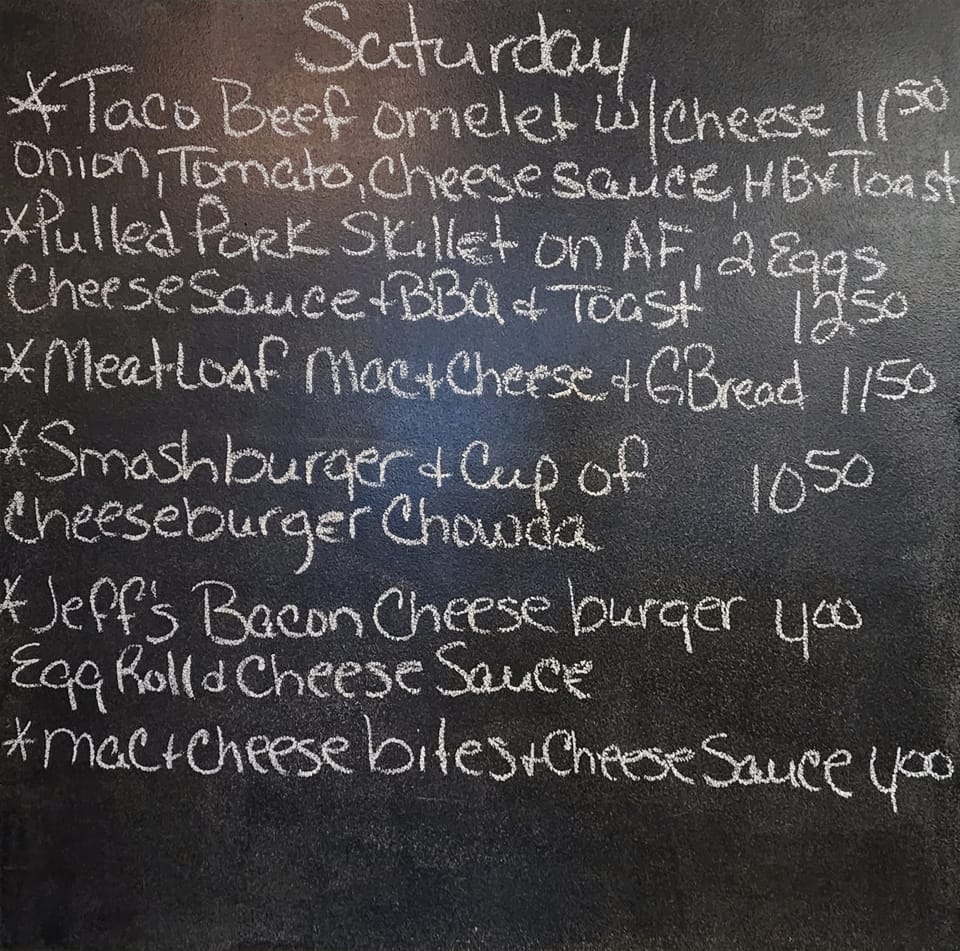 Saturday
*Taco Beef omelet w/cheese 11 50
onion, Tomato, Cheese sauce, HB+Toast
*Pulled Pork Skillet on AF, 2 Eggs
Cheese Sauce + BBQ + Toast 12 50
*Meatloaf Mac + Cheese + GBread 11 50
*Smashburger + Cup of 10 50
Cheeseburger Chowda
*Jeff's Bacon Cheese burger 4 00
Egg Roll & Cheese Sauce
*Mac + Cheese bites + Cheese Sauce 4 00